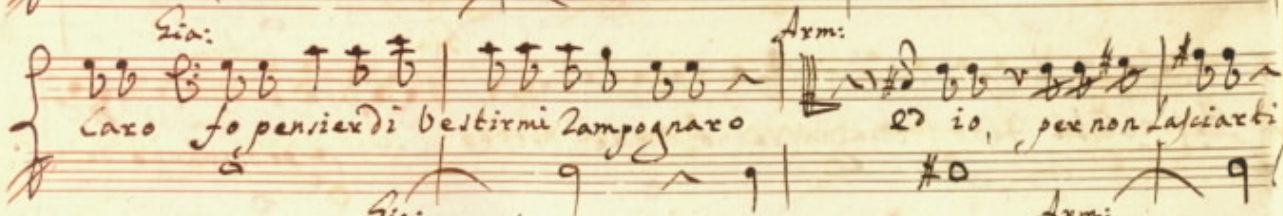 Gia: Arm:
Caro fò pensier di Vestirmi Zampognaro ed io, per non lasciarti
Gia: Arm: